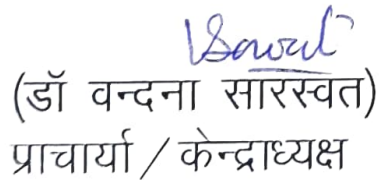 (डॉ वन्दना सारस्वत)
प्राचार्या / केन्द्राध्यक्ष